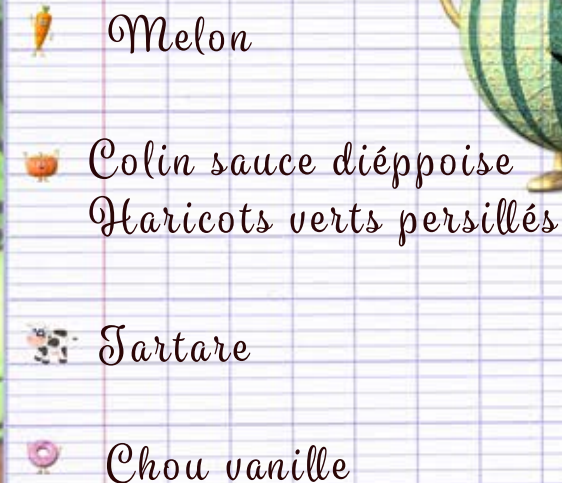 Melon
Colin sauce diéppoise
Haricots verts persillés
Tartare
Chou vanille